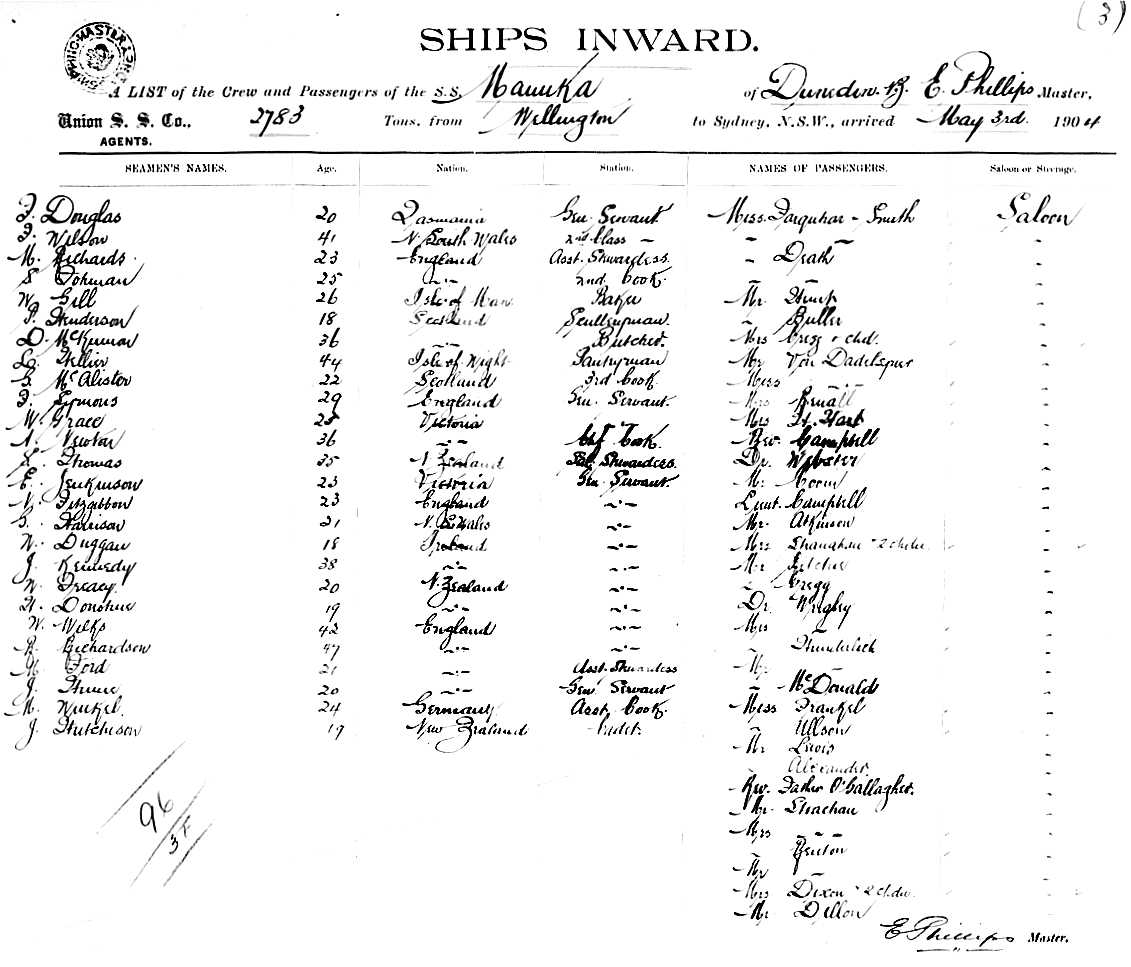 (3)
SHIPS INWARD.
A LIST of the Crew and Passengers of the S.S. Manuka of Dunedin E. Phillips Master,
Union S. S. Co., 2783 Tons, from Wellington to Sydney, N.S.W., arrived May 3rd. 1904
AGENTS.
SEAMEN'S NAMES. Age. Nation. Station. NAMES OF PASSENGERS. Saloon or Steerage.
Douglas 20 Tasmania Gen. Servant Miss Farquhar - Smith Saloon
Wilson 41 N. South Wales 2nd Class - " - "
M. Richards 23 England Asst. Stwardess. " Death "
S. 25 " 2nd. Cook. "
W. Gill 26 Isle of Man Baker Mr "
P. Henderson 18 Scotland Sculleryman. " Butler "
D. McKinnon 36 " Butcher. Mrs Gregg & chd. "
Hellier 44 Isle of Wight Pantryman Mr Von Dadelszen "
G. McAlister 22 Scotland 3rd Cook. Miss " "
Symons 29 England Gen. Servant. Mrs "
W. Grace 25 Victoria " Mrs St. Hart "
Newton 36 " Chf Cook. Rev. Campbell "
Thomas 35 N Zealand Sal. Stwardess. Dr. Webster "
E. Jenkinson 23 Victoria Gen. Servant. Mr "
N. Fitzgibbon 23 England " Lieut. Campbell "
G. Harrison 21 N. S Wales " Mr. Atkinson "
W. Duggan 18 Ireland " Mrs Shanahan & 2 chdn. "
J. Kennedy 38 " " Mr Ritchie "
W. Treacy. 20 N. Zealand " " Gregg "
H. Donohue 19 " " Dr. Wrigley "
W. Wilks 42 England " Mrs "
R. Richardson 47 " " Thunderlich "
Ford 21 " Asst. Stwardess Mr "
J. 20 " Gen. Servant " McDonald "
M. Winkel. 24 Germany Asst. Cook. Miss Frankel "
J. Hutchison 19 New Zealand Cadet. " Ullson "
Mr Lewis "
" Alexander. "
Rev. Father O'Gallagher. "
Mr. Strachan "
Mrs " "
Renton "
Mr "
Mrs Dixon & 2 chdn. "
Mr Dillon "
96
34
E Phillips Master.